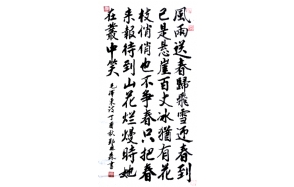 風雨送春歸飛雪迎春到
已是懸崖百丈冰猶有花
枝悄悄也不爭春只把春
来報待到山花爛熳時她
在叢中笑
毛澤東詩丁酉秋 書